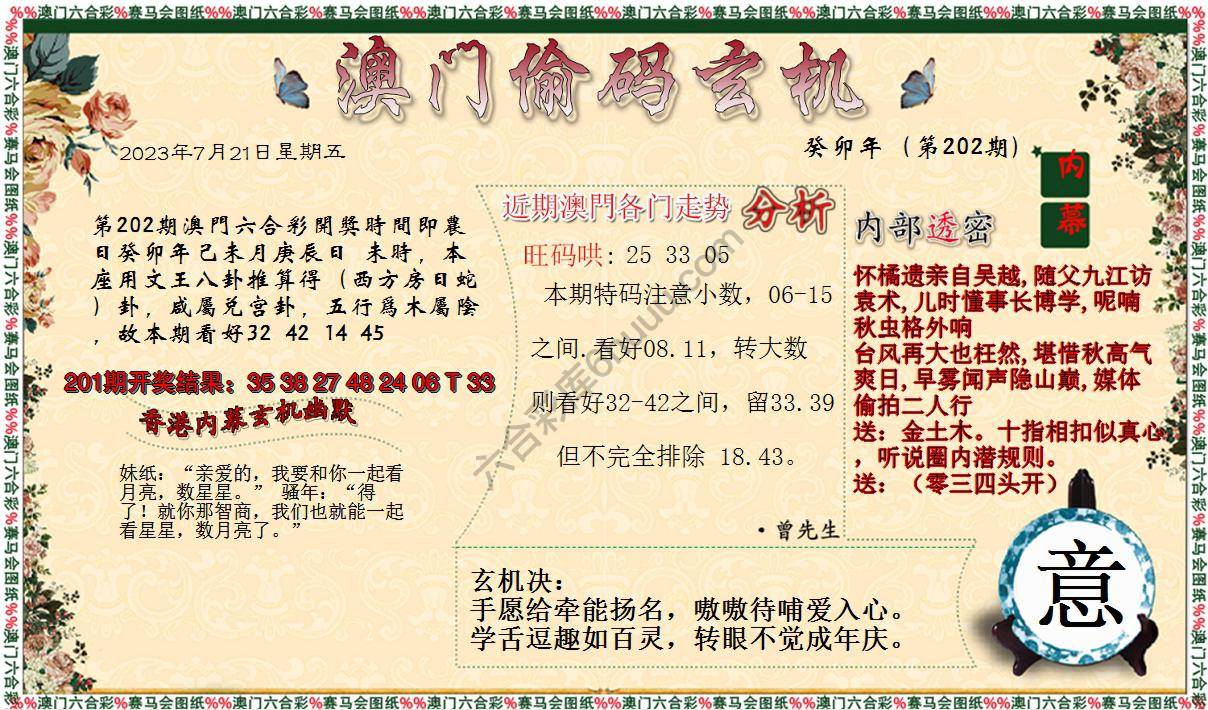 %%澳门六合彩%赛马会图纸%%澳门六合彩%赛马会图纸%%澳门六合彩%赛马会图纸%%澳门六合彩%赛马会图纸%%澳门六合彩%赛马会图纸%%澳门六合彩%赛马会图纸%%
澳门偷码玄机
2023年7月21日星期五
癸卯年（第202期）
内幕
第202期澳門六合彩開獎時間即農
日癸卯年己未月庚辰日 未時，本
座用文王八卦推算得（西方房日蛇
）卦，咸屬兑宫卦，五行爲木屬陰
，故本期看好32 42 14 45
201期开奖结果：35 38 27 48 24 06 T 33
香港内幕玄机幽默
妹纸：“亲爱的，我要和你一起看
月亮，数星星。” 骚年：“得
了！就你那智商，我们也就能一起
看星星，数月亮了。”
近期澳門各门走势 分析
旺码哄: 25 33 05
本期特码注意小数，06-15
之间.看好08.11，转大数
则看好32-42之间，留33.39
但不完全排除 18.43。
·曾先生
内部透密
怀橘遗亲自吴越,随父九江访
袁术,儿时懂事长博学,呢喃
秋虫格外响
台风再大也枉然,堪惜秋高气
爽日,早雾闻声隐山巅,媒体
偷拍二人行
送：金土木。十指相扣似真心
，听说圈内潜规则。
送：（零三四头开）
玄机决：
手愿给牵能扬名，嗷嗷待哺爱入心。
学舌逗趣如百灵，转眼不觉成年庆。
意